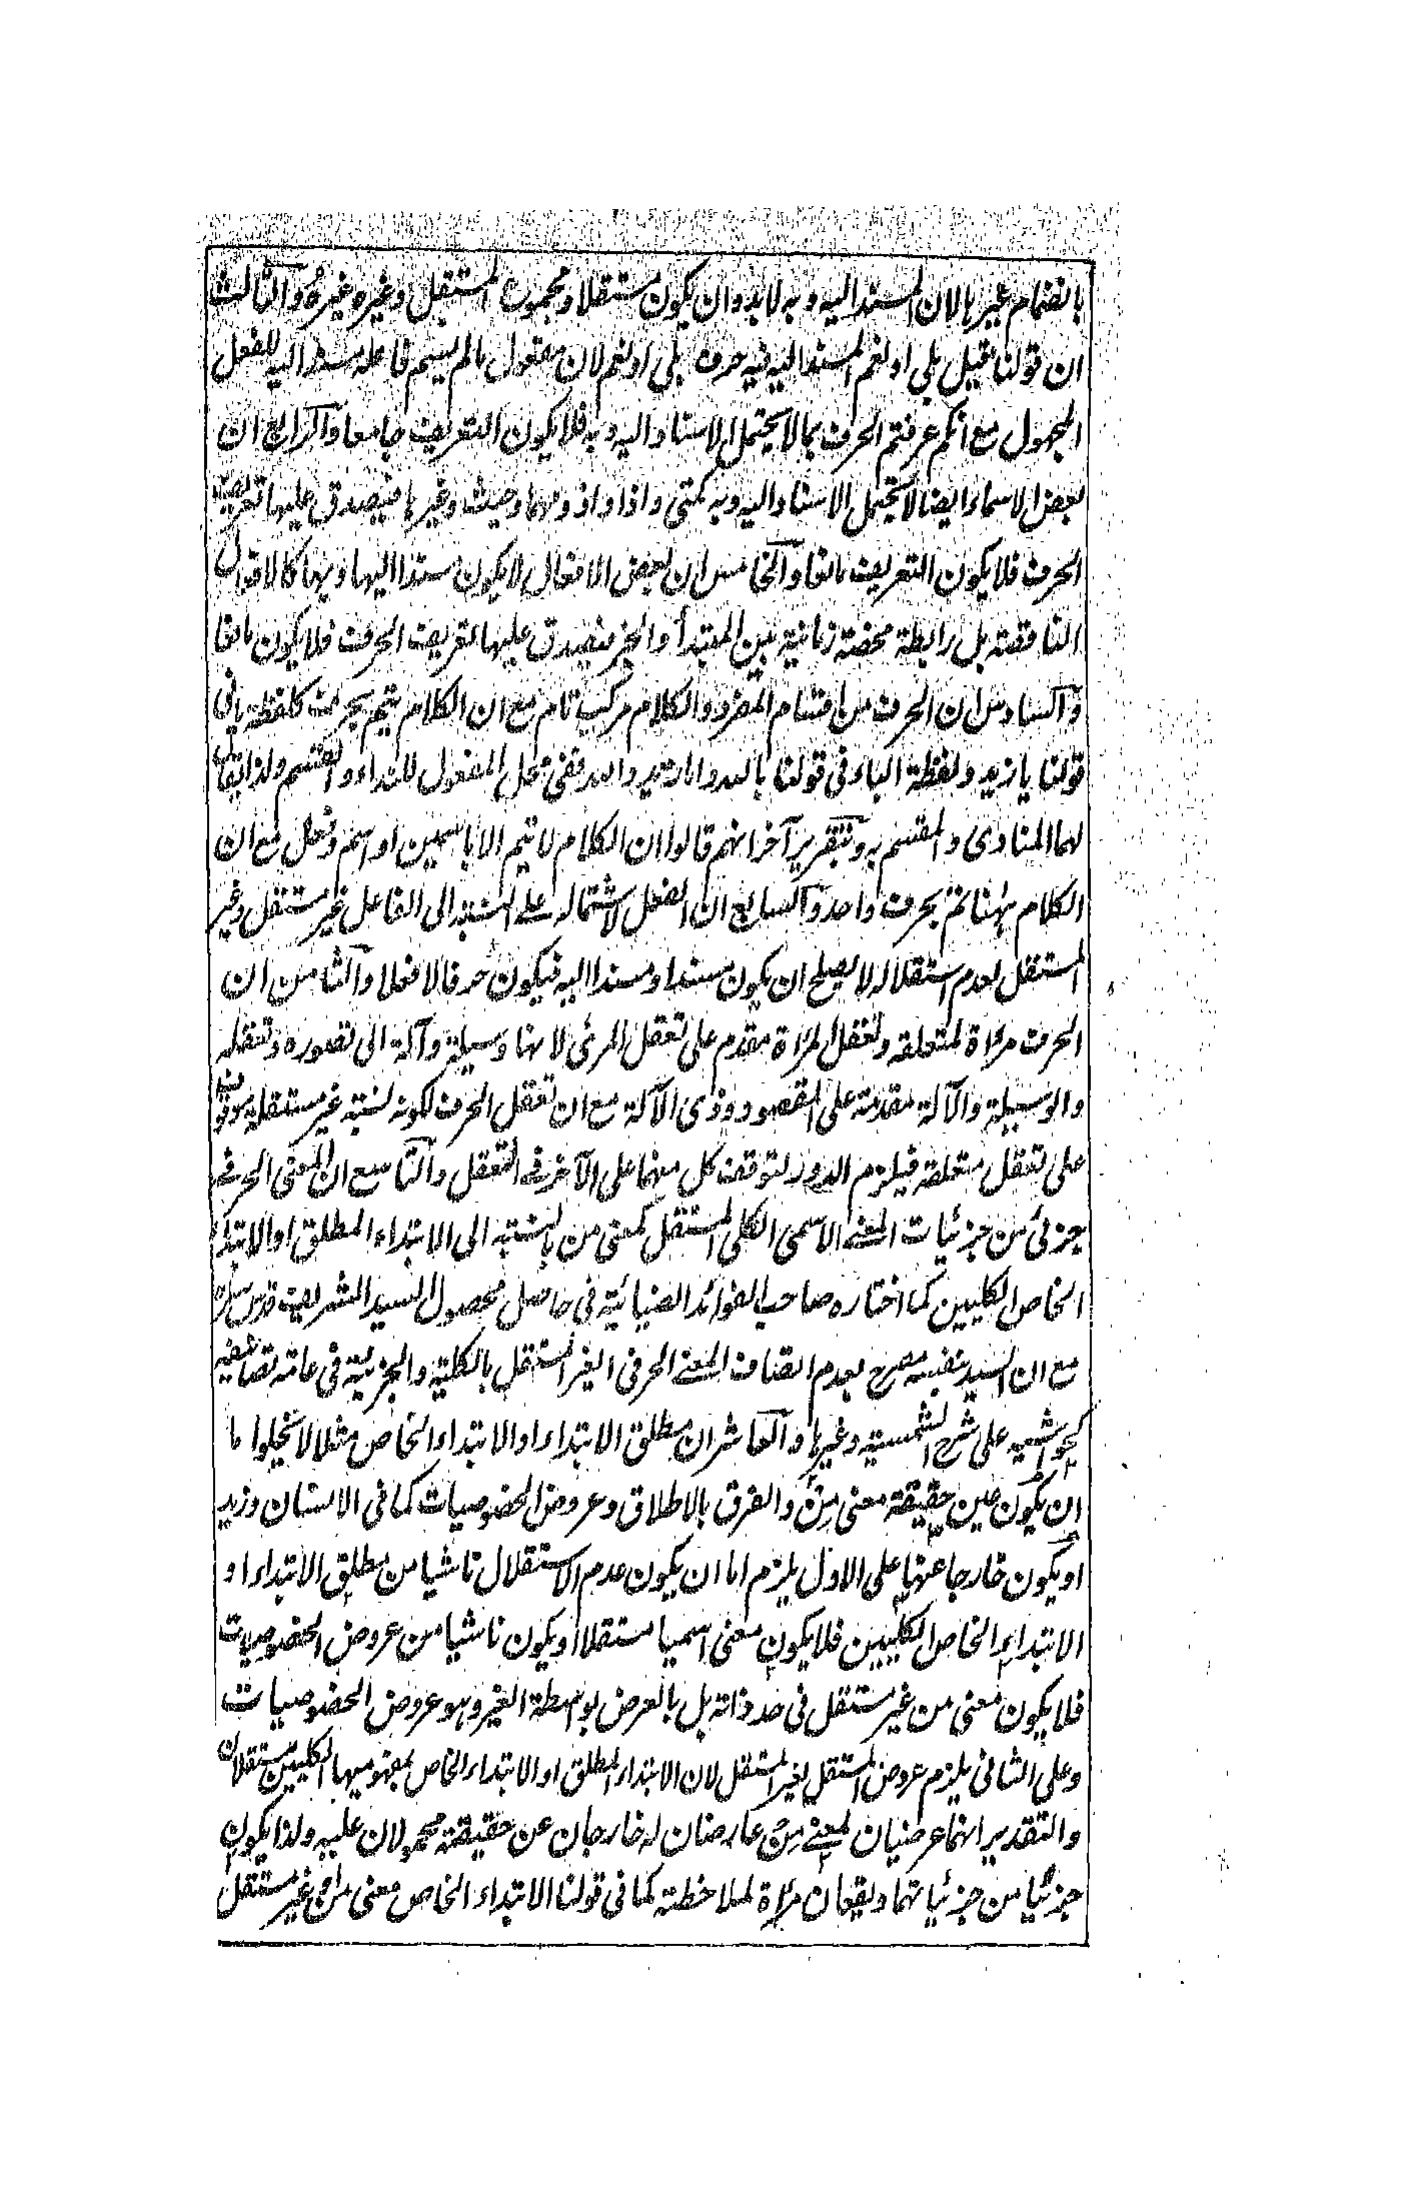 بانضمام غيرها لان المسند اليه وبه لابد وان يكون مستقلا ومجموع المستقل وغيره غيره والثالث
ان قولنا قيل بلى او نعم المسند اليه فيه حرف بلى او نعم لان مفعول مالم يسم فاعله مسند اليه للفعل
المجهول مع انكم عرفتم الحرف بما لا يحتمل الاسناد اليه وبه فلا يكون التعريف جامعا والرابع ان
بعض الاسماء ايضا لا يحتمل الاسناد اليه وبه كمتى واذا واذ ومهما وحيث وغيرها فيصدق عليها تعريف
الحرف فلا يكون التعريف مانعا والخامس ان بعض الافعال لا يكون مسندا اليها وبها كالافعال
الناقصة بل رابطة محضة زمانية بين المبتدأ والخبر فيصدق عليها تعريف الحرف فلا يكون مانعا
والسادس ان الحرف من اقسام المفرد والكلام مركب تام مع ان الكلام يتم بحرف كلفظة يا في
قولنا يا زيد ولفظة الباء في قولنا بالله واما زيد والله ففي محل المفعول للنداء والقسم ولذا يقال
لهما المنادى والمقسم به وبتقرير آخر انهم قالوا ان الكلام لا يتم الا باسمين او اسم وفعل مع ان
الكلام ههنا تم بحرف واحد والسابع ان الفعل لاشتماله على النسبة الى الفاعل غير مستقل وغير
المستقل لعدم استقلاله لا يصلح ان يكون مسندا ومسندا اليه فيكون حرفا لا فعلا والثامن ان
الحرف مرآة لمتعلقه وتعقل المرآة مقدم على تعقل المرئى لانها وسيلة وآلة الى تصوره وتعقله
والوسيلة والآلة مقدمة على المقصود وذى الآلة مع ان تعقل الحرف لكونه نسبة غير مستقلة موقوف
على تعقل متعلقه فيلزم الدور لتوقف كل منهما على الآخر في التعقل والتاسع ان المعنى الحرفي
جزئي من جزئيات المعنى الاسمى الكلى المستقل كمعنى من بالنسبة الى الابتداء المطلق او الابتداء
الخاص الكليين كما اختاره صاحب الفوائد الضيائية في حاصل محصول السيد الشريف قدس سره
مع ان السيد بنفسه مصرح بعدم اتصاف المعنى الحرفى الغير المستقل بالكلية والجزئية في عامة تصانيفه
كحواشيه على شرح الشمسية وغيرها والعاشر ان مطلق الابتداء او الابتداء الخاص مثلا لا يخلوا ما
ان يكون عين حقيقة معنى من والفرق بالاطلاق وعروض الخصوصيات كما في الانسان وزيد
او يكون خارجا عنها على الاول يلزم اما ان يكون عدم الاستقلال ناشيا من مطلق الابتداء او
الابتداء الخاص الكليين فلا يكون معنى اسميا مستقلا او يكون ناشيا من عروض الخصوصيات
فلا يكون معنى من غير مستقل في حد ذاته بل بالعرض بواسطة الغير وهو عروض الخصوصيات
وعلى الثاني يلزم عروض المستقل لغير المستقل لان الابتداء المطلق او الابتداء الخاص بمفهوميهما الكليين مستقلان
والتقدير انهما عرضيان لمعنى من عارضان له خارجان عن حقيقته محمولان عليه ولذا يكون
جزئيا من جزئياتهما ويقعان مرآة لملاحظته كما في قولنا الابتداء الخاص معنى من غير مستقل